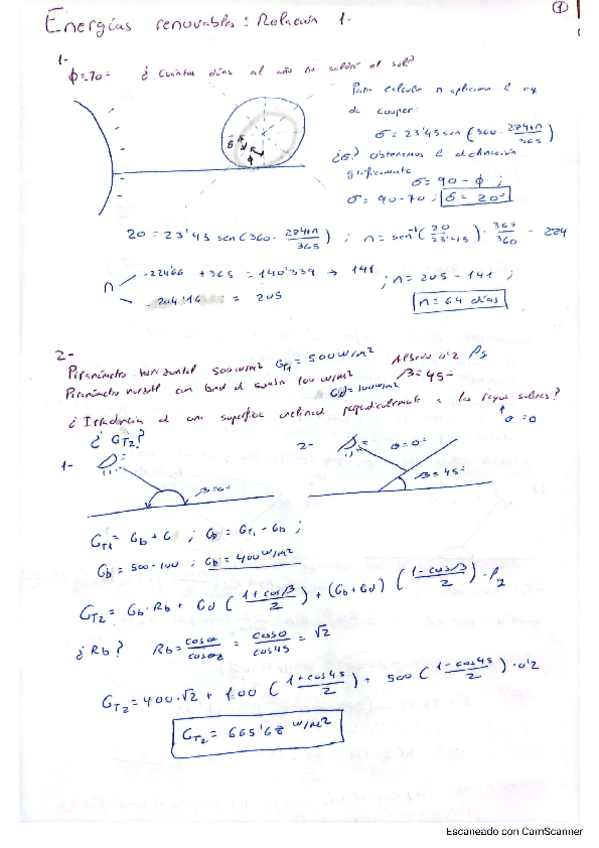 ①
Energías renovables: Relación 1.
1-
φ=70° ¿Cuántos días al año no saldrá el sol?
Para calcular n aplicamos la eq
de couper:
σ = 23'45 sen (360 · 284+n/365)
¿σ? Obtenemos la declinación
gráficamente
σ = 90 - φ ;
σ = 90 - 70 ; σ = 20°
20 = 23'45 sen (360 · 284+n/365) ; n = sen⁻¹(20/23'45) · 365/360 - 284
n -224'66 + 365 = 140'339 → 141 ; n = 205 - 141 ;
204'16 = 205
n = 64 días
2-
Piranómetro horizontal 500 W/m² G_T1 = 500 W/m² Albedo 0'2 ρg
Piranómetro horizontal con banda de sombra 100 W/m² Gd = 100 W/m² β = 45°
¿Irradiancia de una superficie inclinada perpendicularmente a los rayos solares?
θ = 0
¿G_T2?
1- β=0°
2- θ=0° β=45°
G_T1 = Gb + G ; Gb = G_T1 - Gd ;
Gb = 500 - 100 ; Gb = 400 W/m²
G_T2 = Gb · Rb + Gd (1 + cosβ/2) + (Gb + Gd) (1 - cosβ/2) · ρg
¿Rb? Rb = cosθ/cosθz = cos0/cos45 = √2
G_T2 = 400 · √2 + 100 (1 + cos45/2) + 500 (1 - cos45/2) · 0'2
G_T2 = 665'68 W/m²
Escaneado con CamScanner